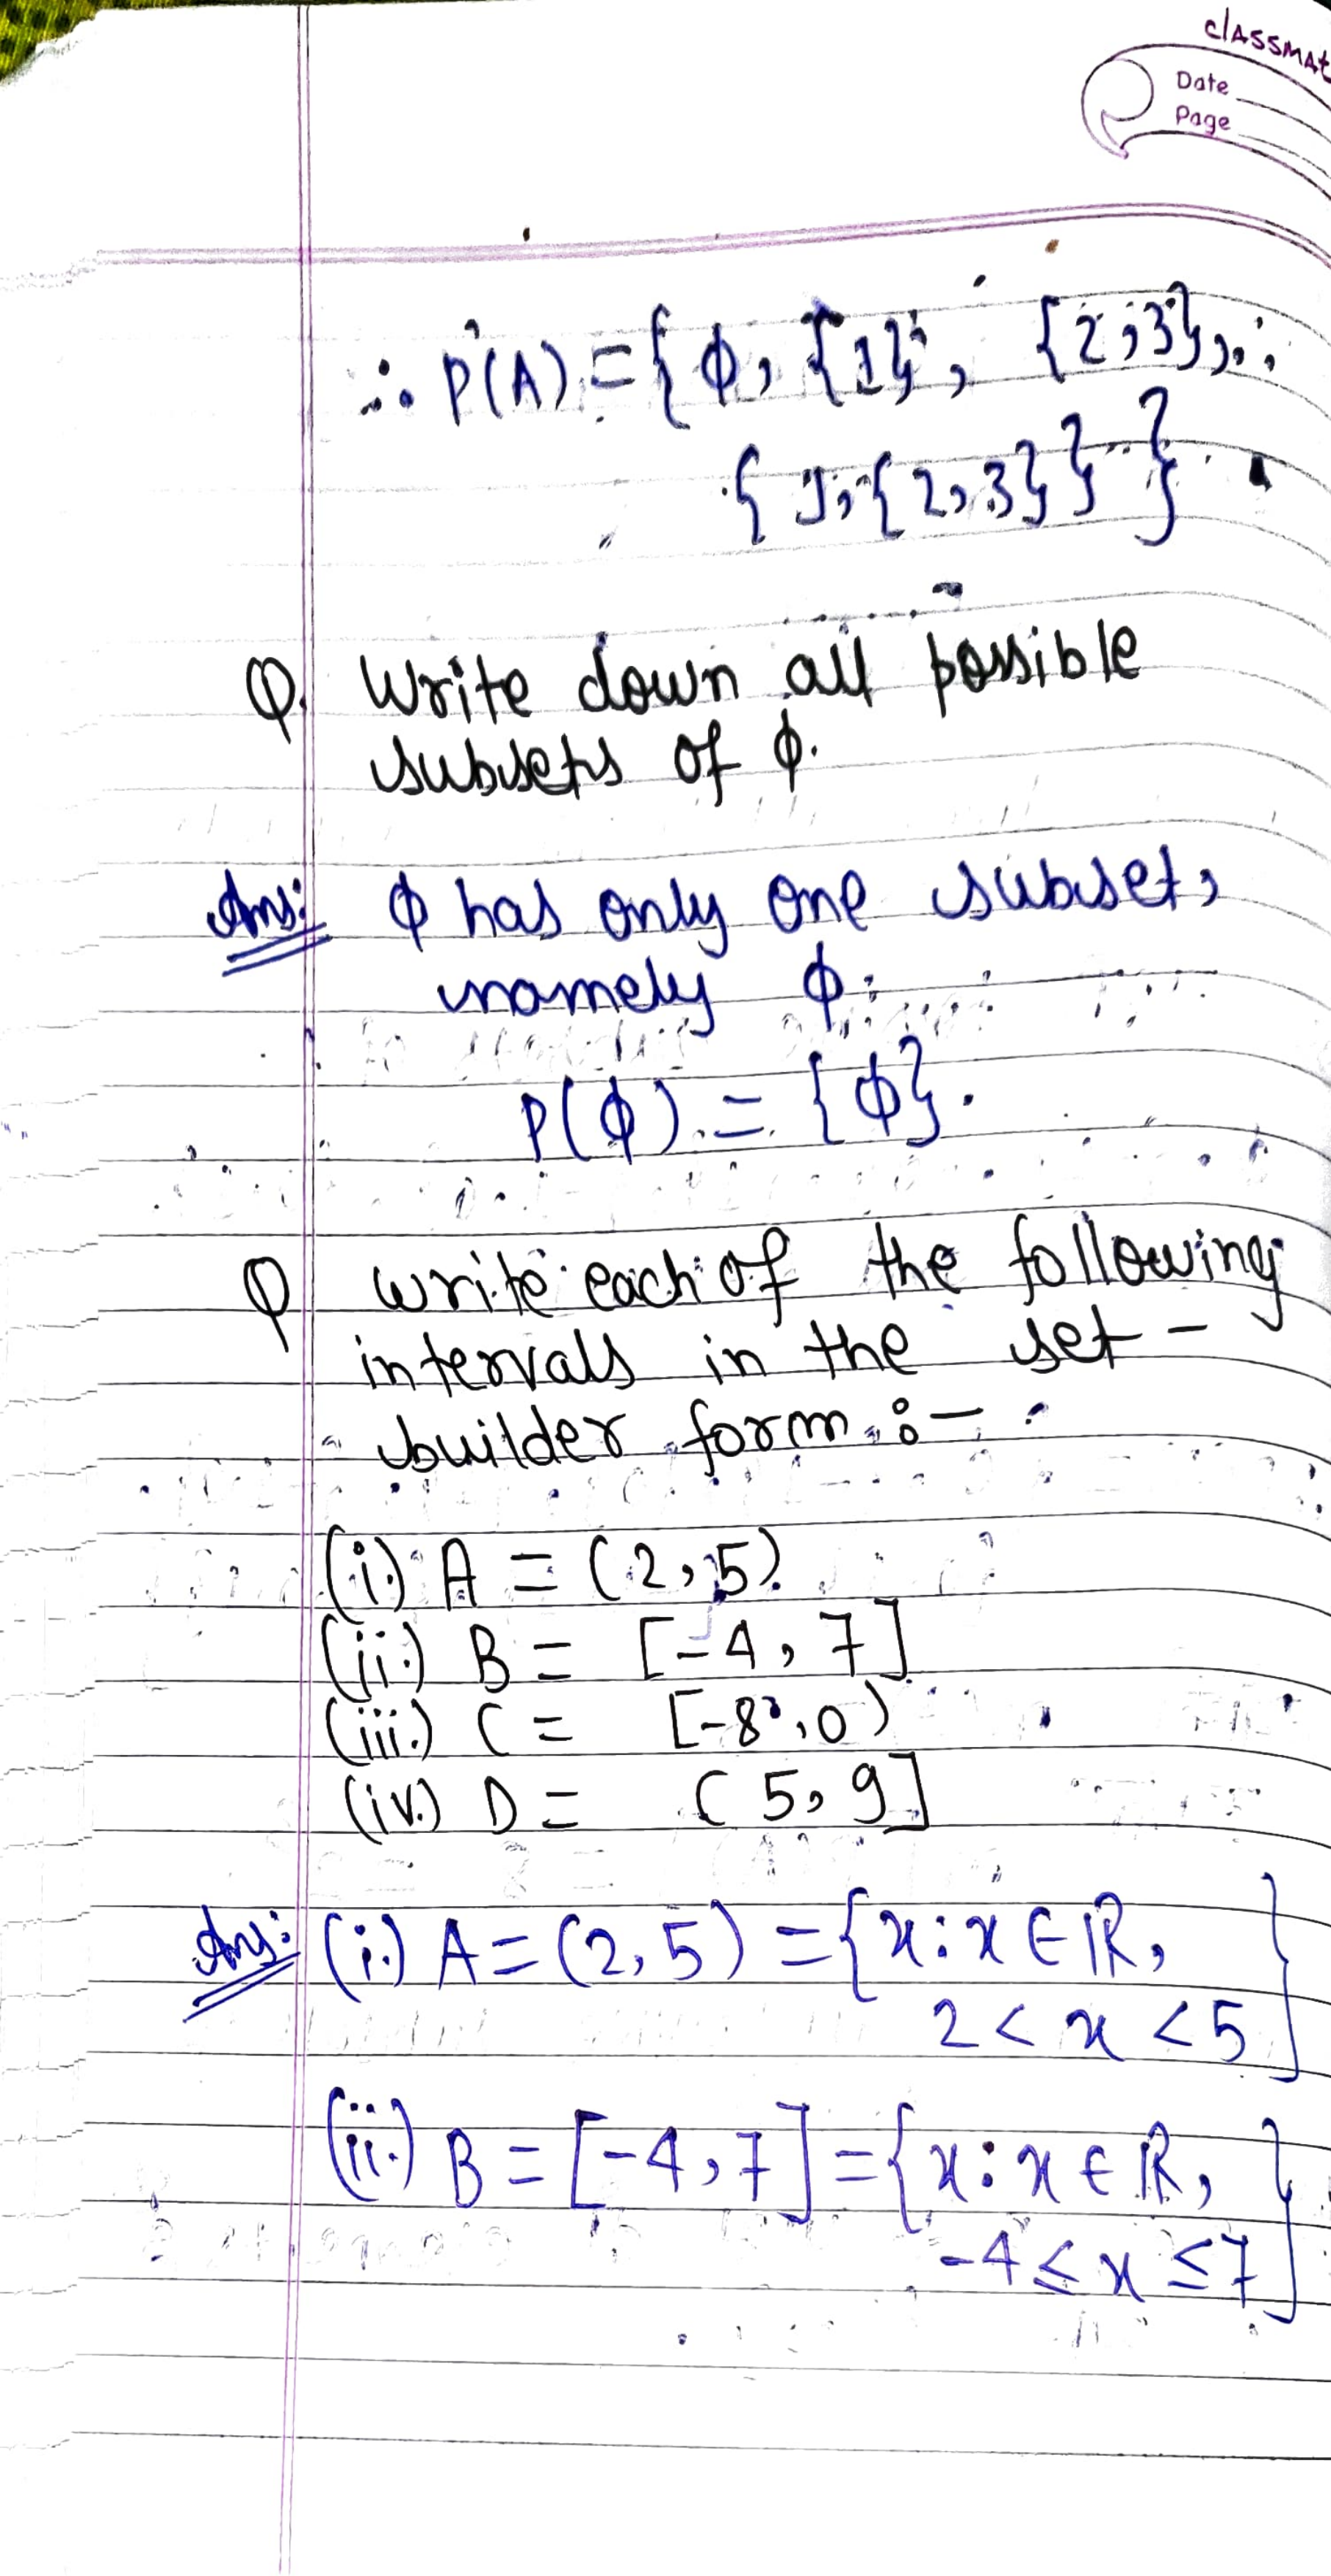 classmat
Date
Page
∴ P(A) = { ϕ, {1}, {2,3},
{ 1, {2,3}} }
Q. Write down all possible
subsets of ϕ.
Ans: ϕ has only one subset,
namely ϕ.
P(ϕ) = {ϕ}.
Q write each of the following
intervals in the set-
builder form :-
(i.) A = (2,5)
(ii.) B = [-4, 7]
(iii.) C = [-8, 0)
(iv.) D = (5, 9]
Ans: (i.) A = (2,5) = {x : x ∈ ℝ,
2 < x < 5}
(ii.) B = [-4, 7] = {x : x ∈ ℝ,
-4 ≤ x ≤ 7}